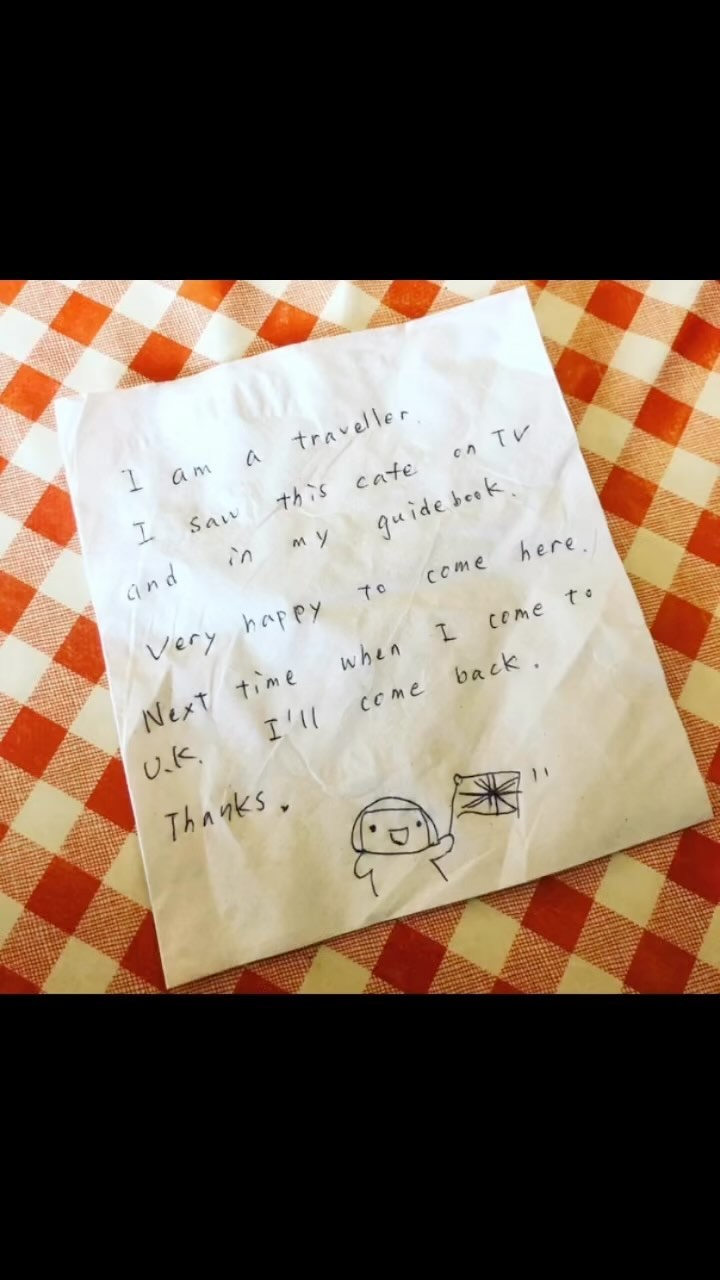 I am a traveller.
I saw this cafe on TV
and in my guidebook.
Very happy to come here.
Next time when I come to
U.K. I'll come back.
Thanks.